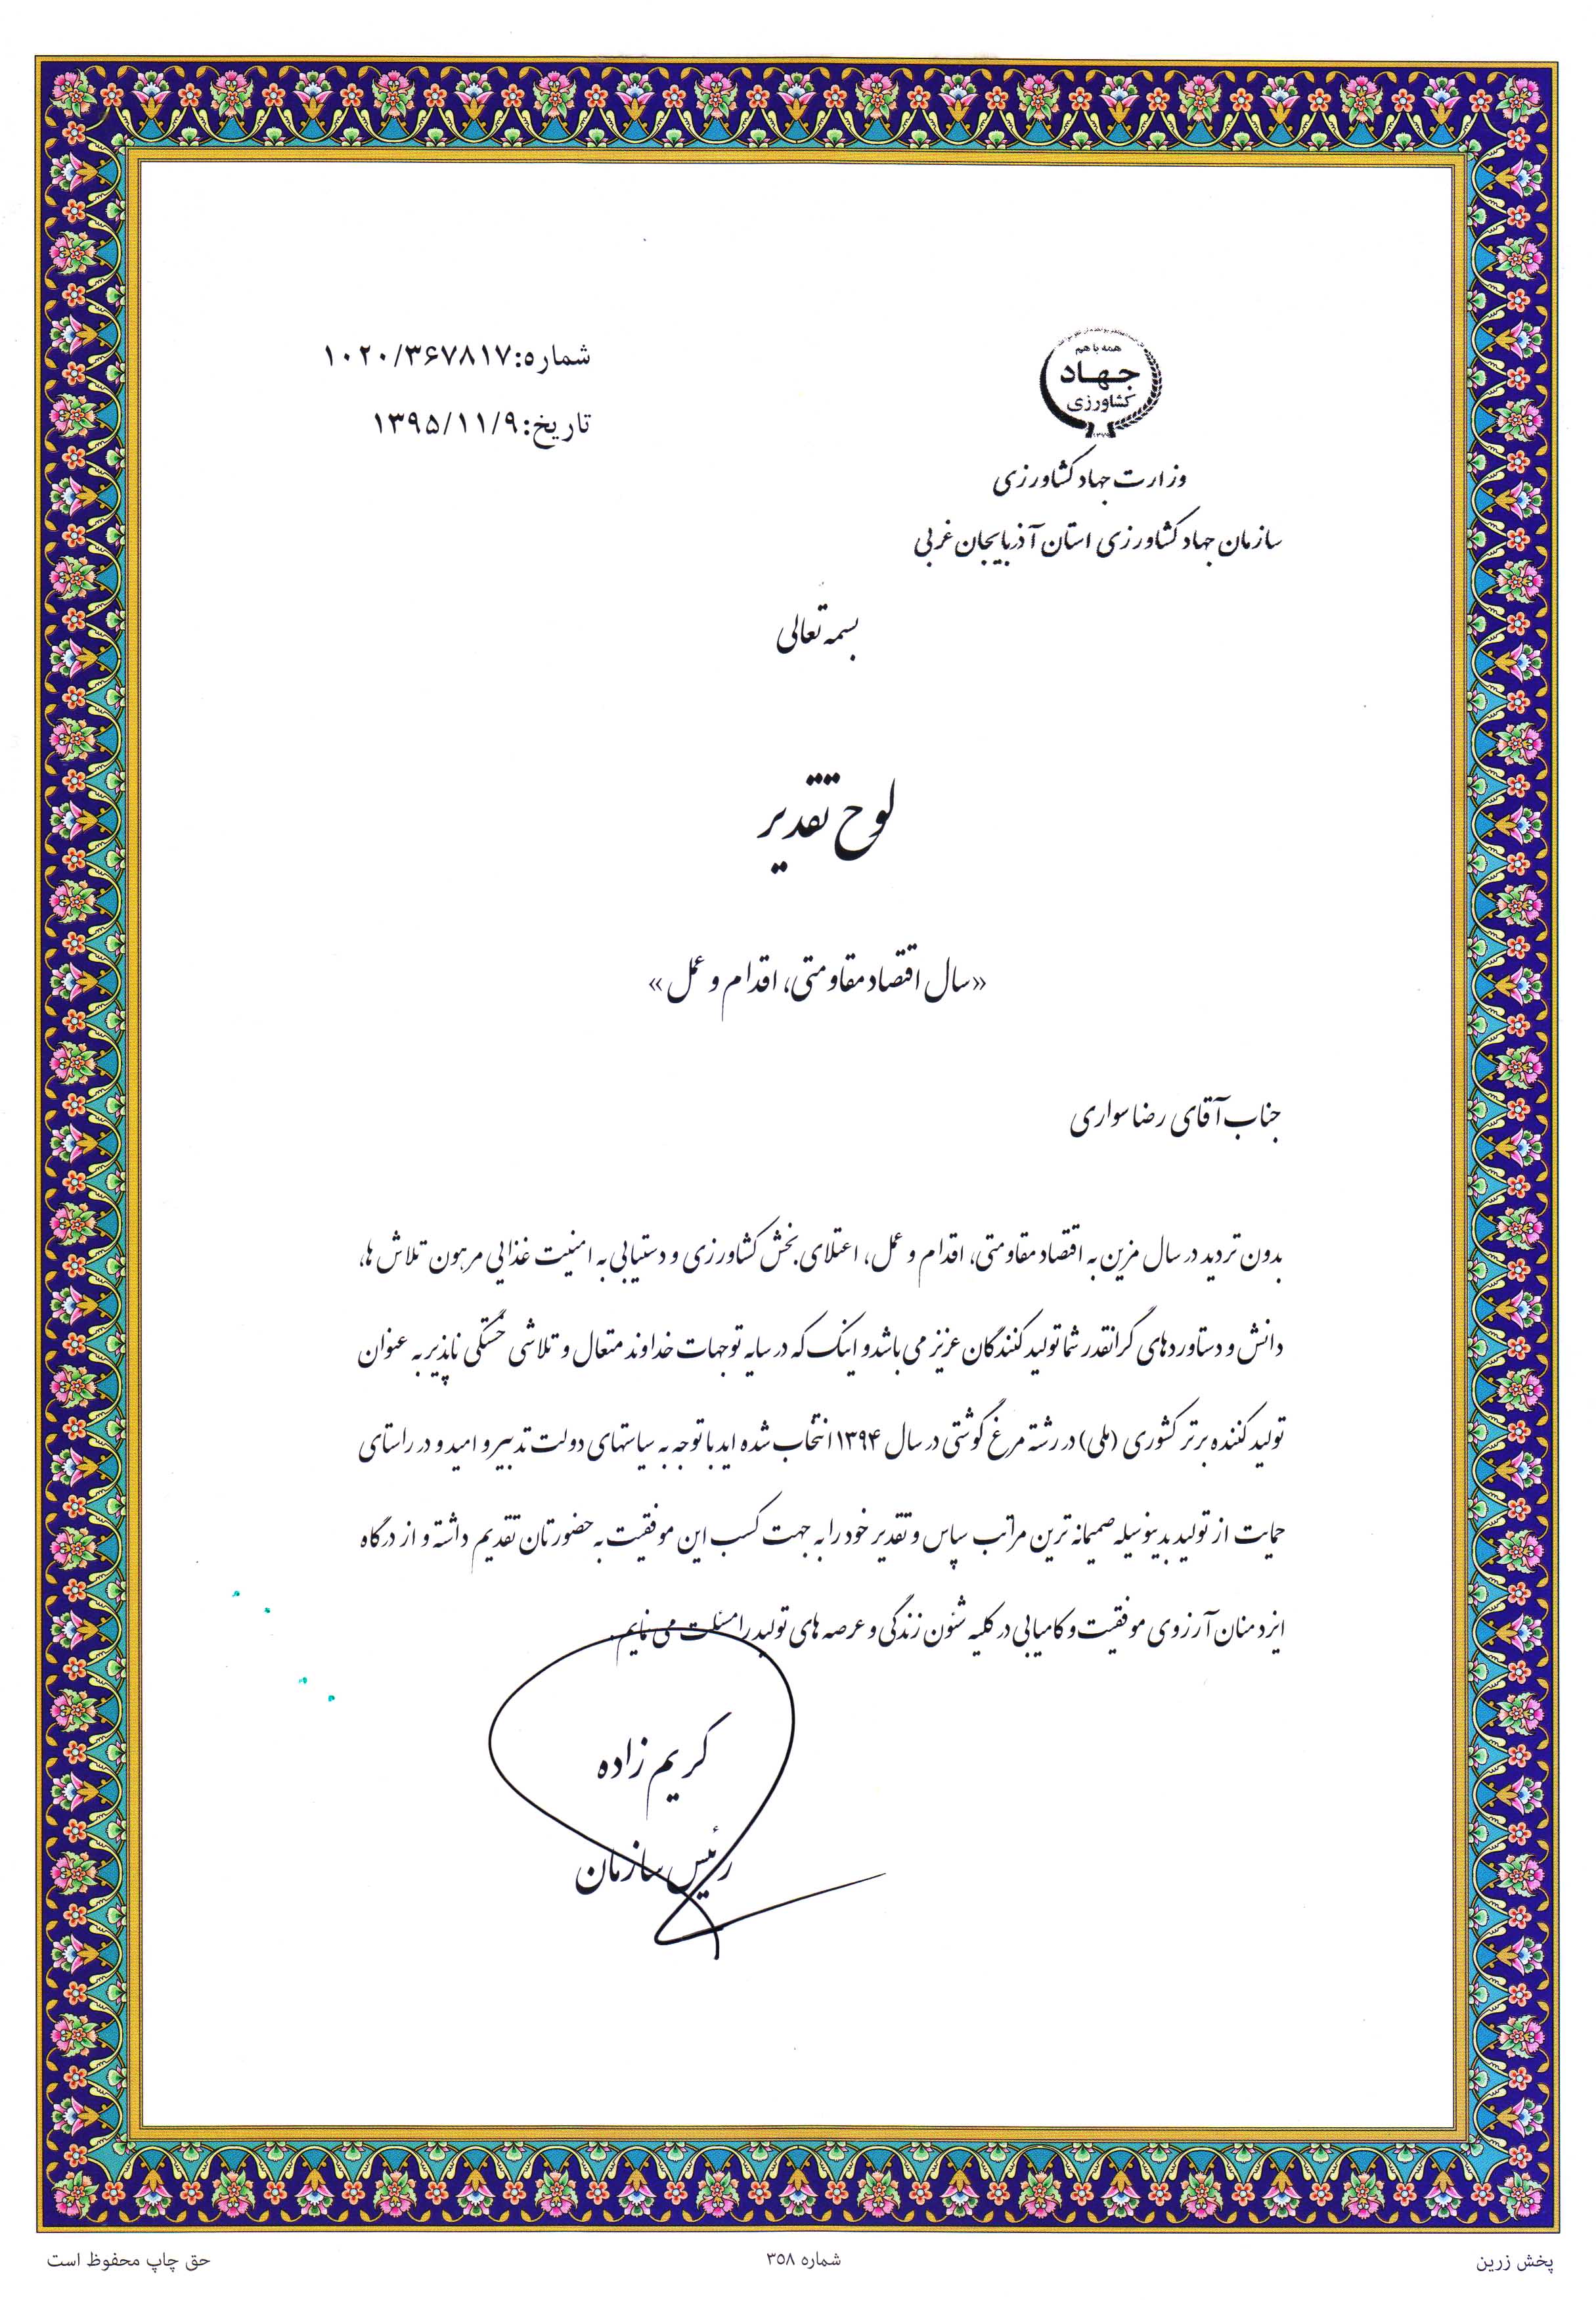 شماره:۱۰۲۰/۳۶۷۸۱۷
تاریخ:۱۳۹۵/۱۱/۹
همه با هم
جهاد
کشاورزی
وزارت جهاد کشاورزی
سازمان جهاد کشاورزی استان آذربایجان غربی
بسمه تعالی
لوح تقدیر
«سال اقتصاد مقاومتی، اقدام و عمل»
جناب آقای رضا سواری
بدون تردید در سال مزین به اقتصاد مقاومتی، اقدام و عمل، اعتلای بخش کشاورزی و دستیابی به امنیت غذایی مرهون تلاش ها،
دانش و دستاوردهای گرانقدر شما تولید کنندگان عزیز می باشد و اینک که در سایه توجهات خداوند متعال و تلاشی خستگی ناپذیر به عنوان
تولید کننده برتر کشوری (ملی) در رشته مرغ گوشتی در سال ۱۳۹۴ انتخاب شده اید با توجه به سیاستهای دولت تدبیر و امید و در راستای
حمایت از تولید بدینوسیله صمیمانه ترین مراتب سپاس و تقدیر خود را به جهت کسب این موفقیت به حضورتان تقدیم داشته و از درگاه
ایزد منان آرزوی موفقیت و کامیابی در کلیه شئون زندگی و عرصه های تولید را مسئلت می نمایم.
کریم زاده
رئیس سازمان
پخش زرین
شماره ۳۵۸
حق چاپ محفوظ است